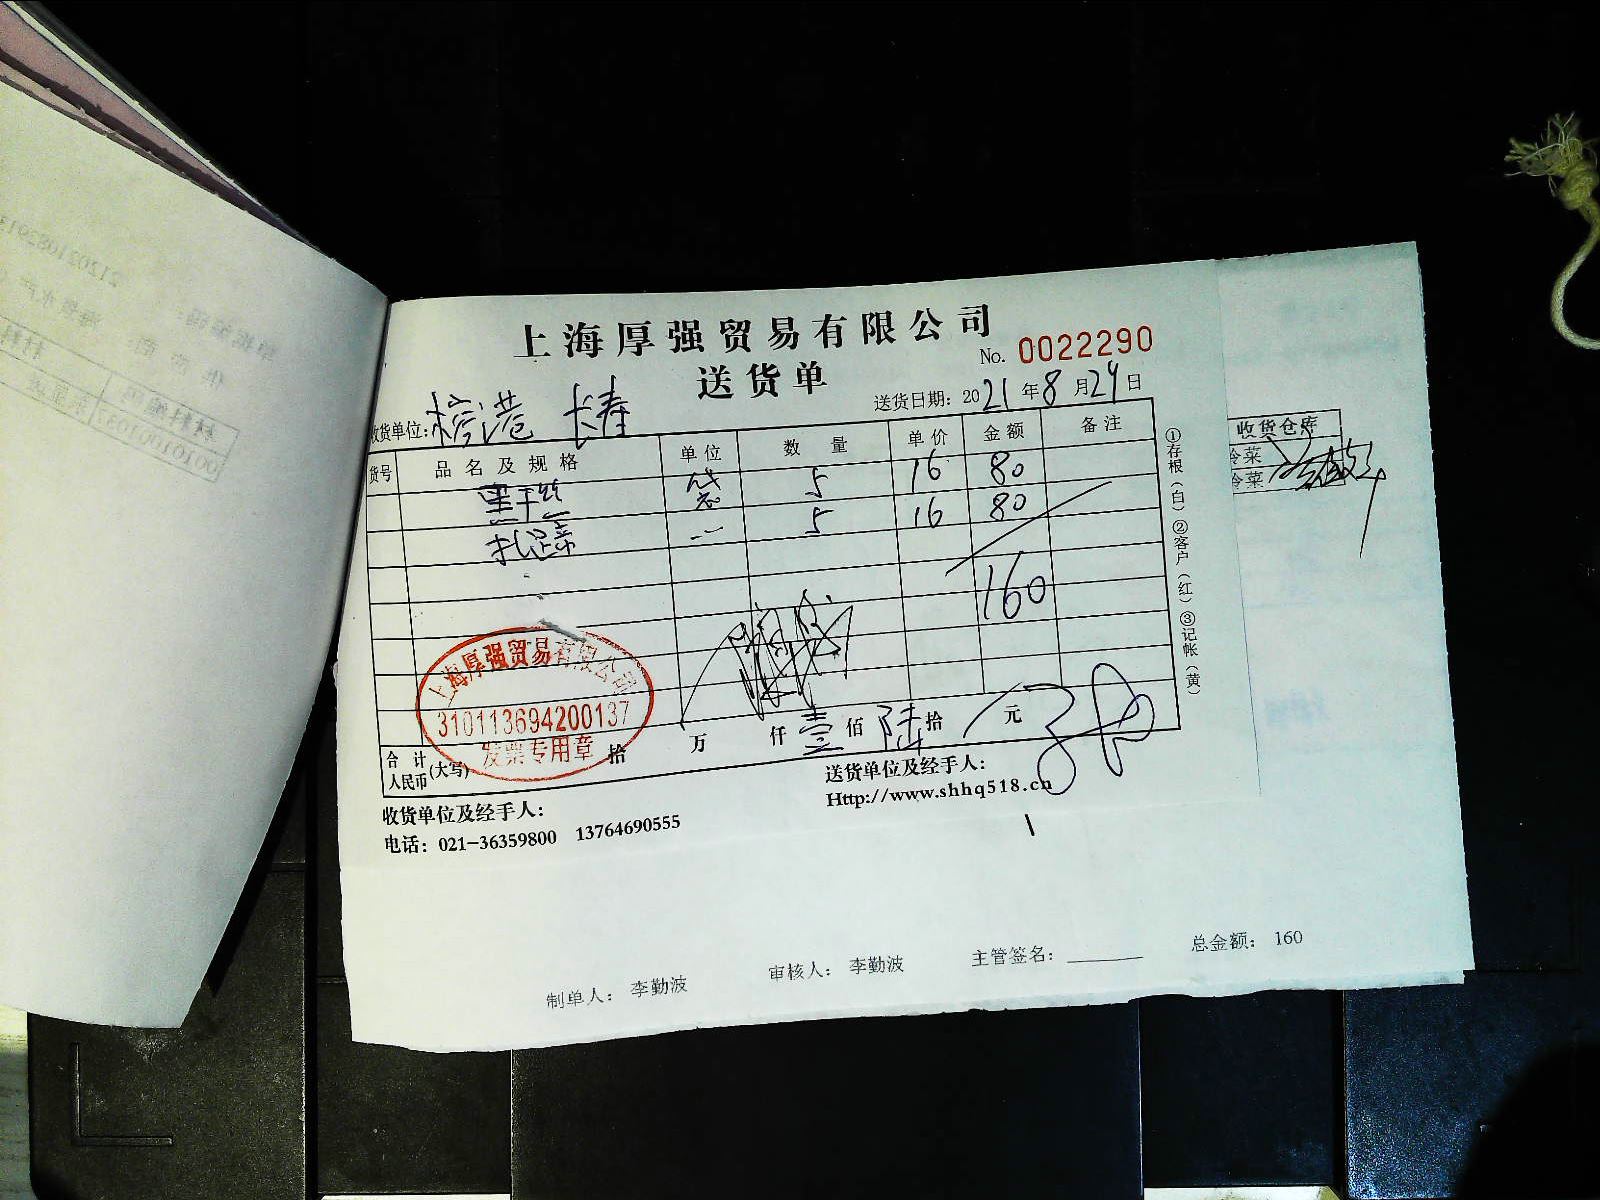 上海厚强贸易有限公司
送货单
No. 0022290
收货单位: 榕港 长寿
送货日期: 2021年8月24日
货号 品名及规格 单位 数量 单价 金额 备注
黑干丝 袋 5 16 80
扎蹄 〃 5 16 80
160
上海厚强贸易有限公司
310113694200137
发票专用章
合计人民币(大写) 拾 万 仟 壹 佰 陆 拾 元
收货单位及经手人:
送货单位及经手人:
Http://www.shhq518.cn
电话: 021-36359800 13764690555
①存根(白)②客户(红)③记帐(黄)
收货仓库
冷菜
冷菜
制单人: 李勤波 审核人: 李勤波 主管签名: 总金额: 160